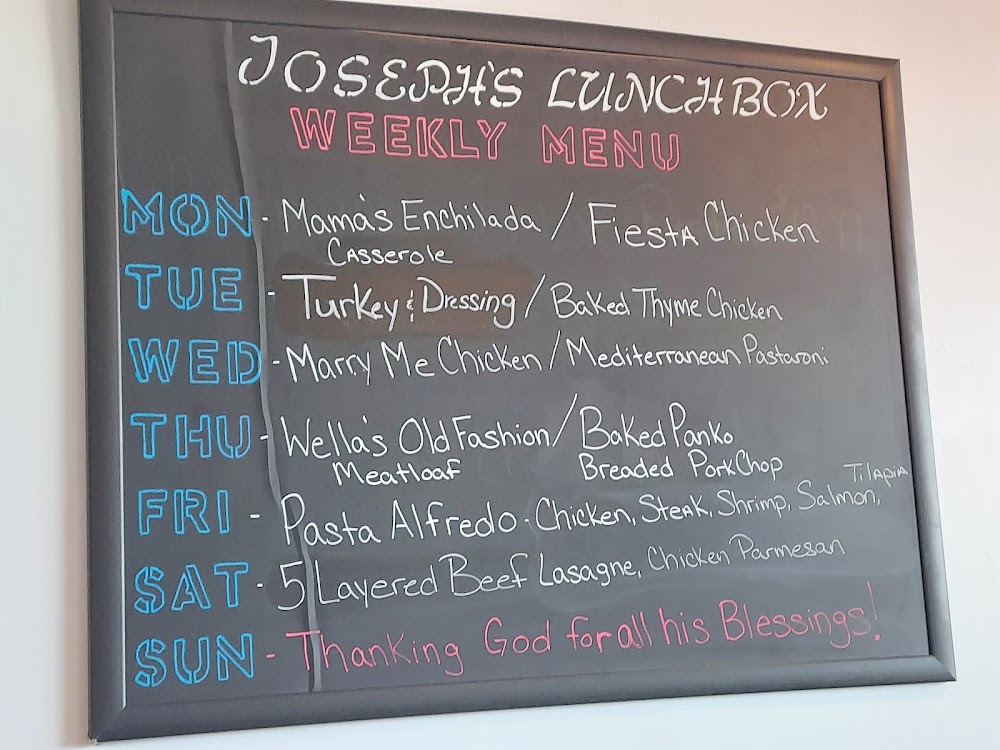 JOSEPH'S LUNCHBOX
WEEKLY MENU
MON - Mama's Enchilada / Fiesta Chicken
Casserole
TUE - Turkey & Dressing / Baked Thyme Chicken
WED - Marry Me Chicken / Mediterranean Pastaroni
THU - Wella's Old Fashion / Baked Panko
Meatloaf Breaded Pork Chop
Tilapia
FRI - Pasta Alfredo - Chicken, Steak, Shrimp, Salmon,
SAT - 5 Layered Beef Lasagne, Chicken Parmesan
SUN - Thanking God for all his Blessings!